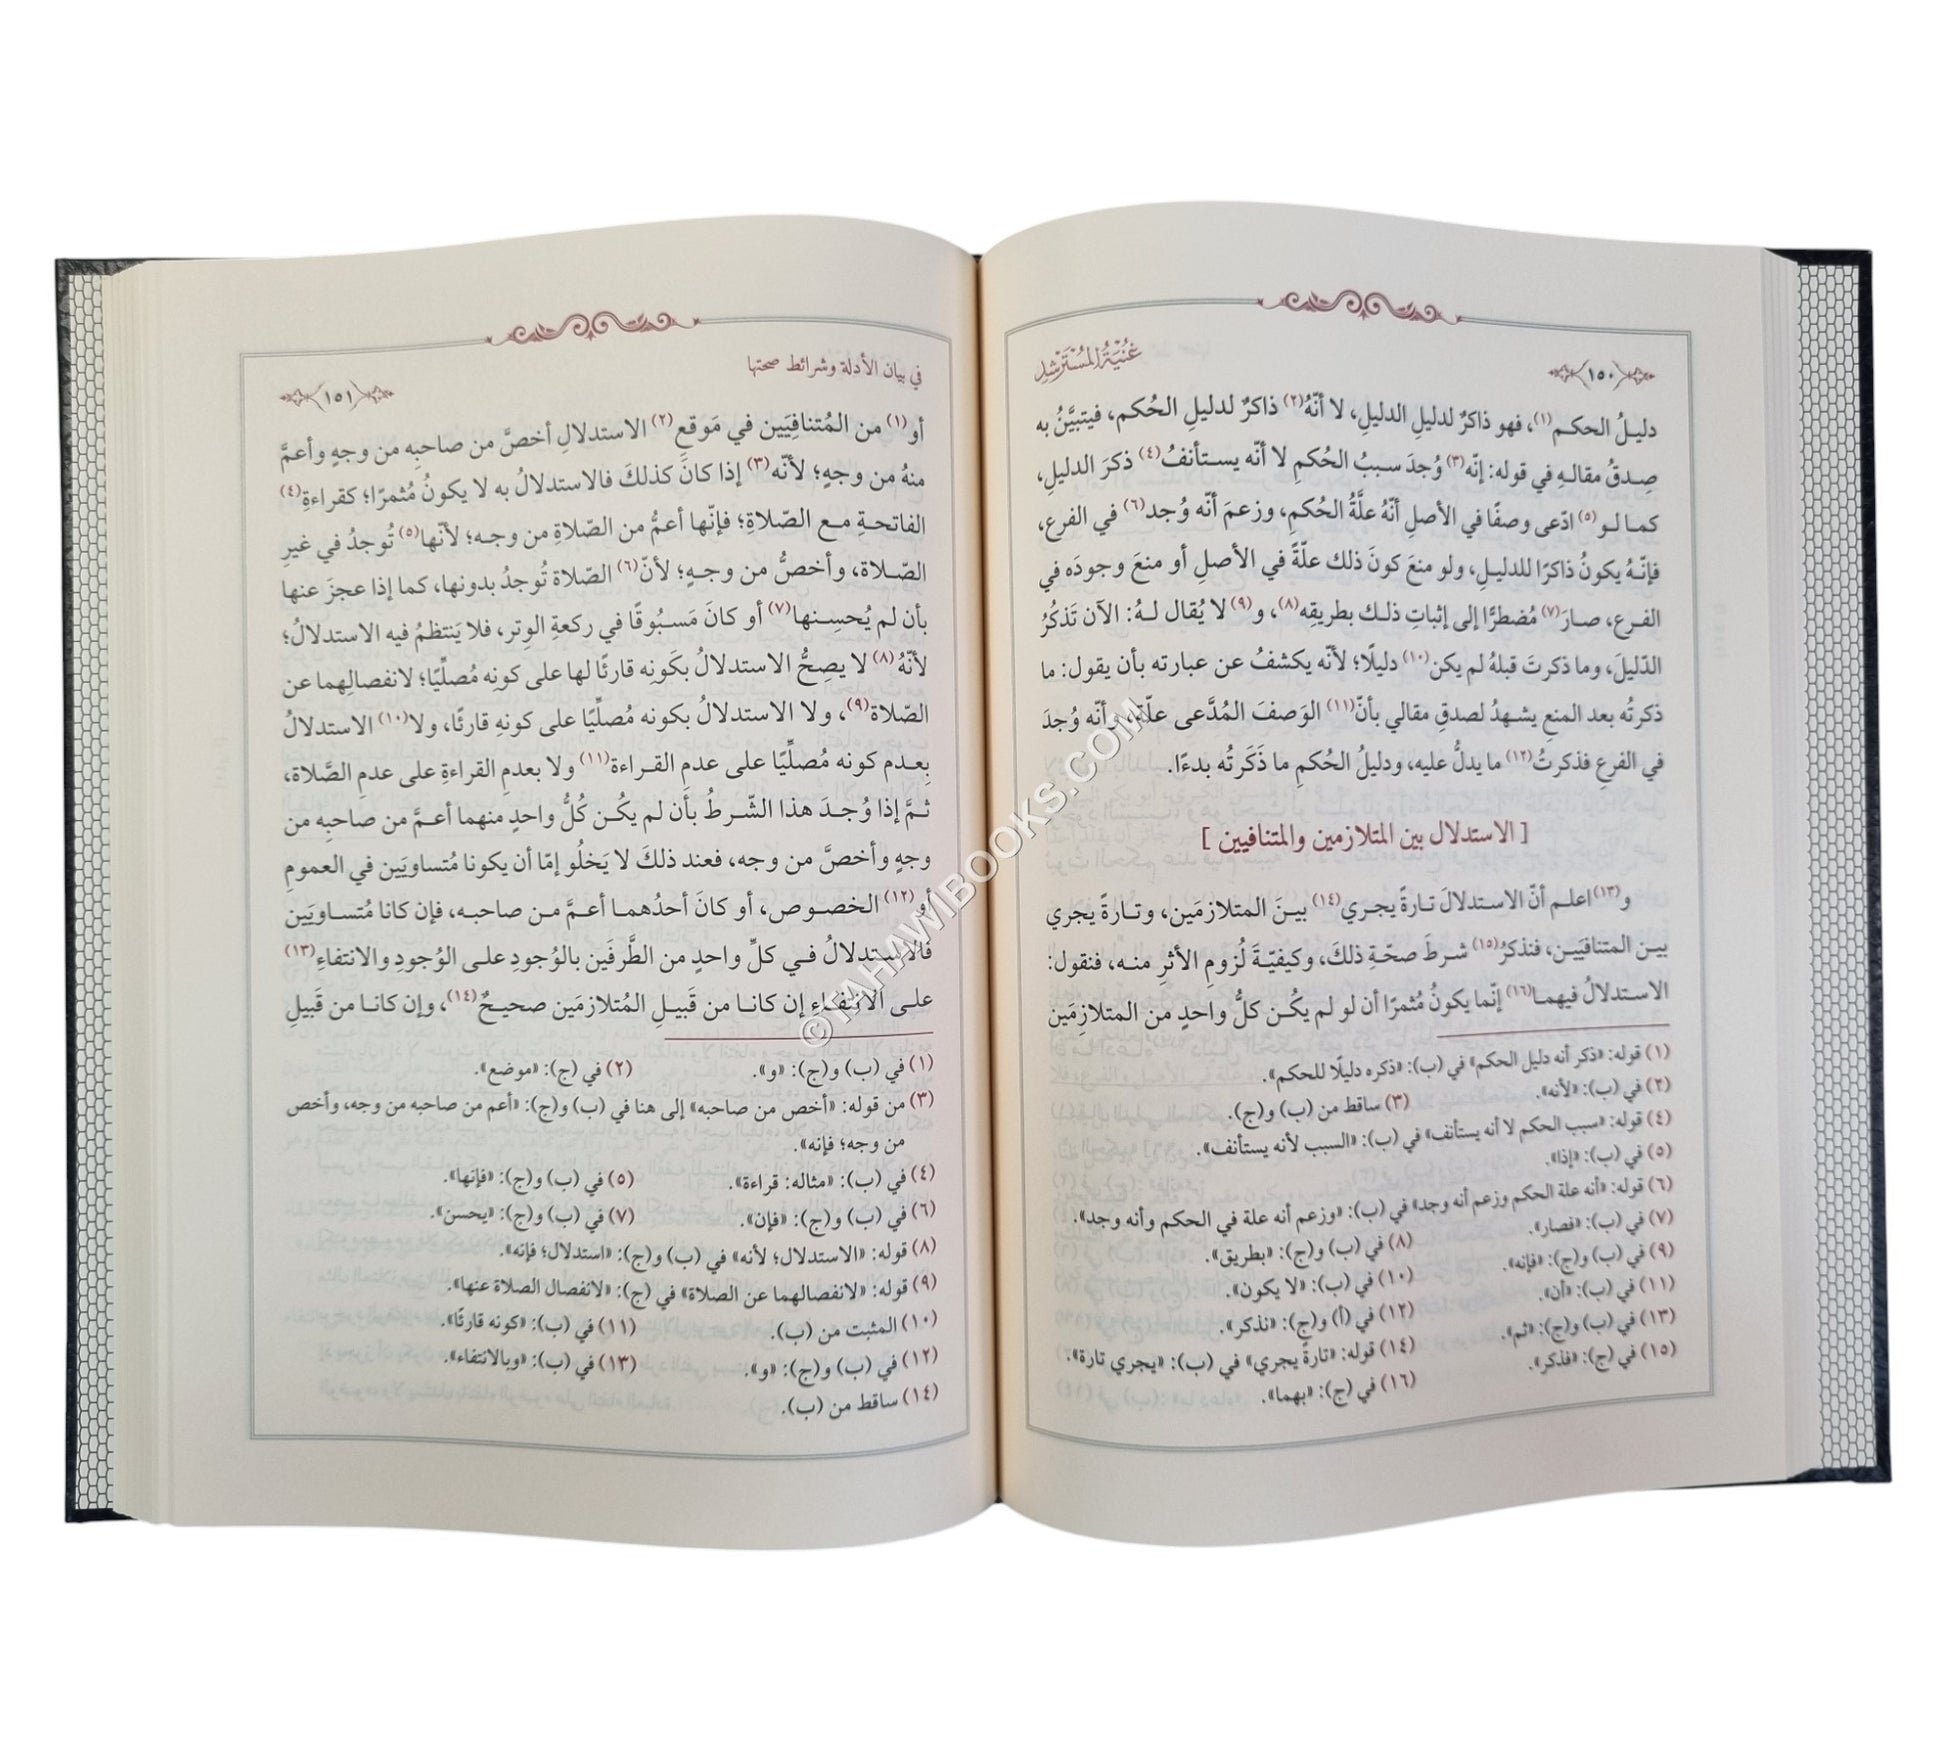 غُنْيَةُ المُسْتَرْشِدِ
١٥٠
دليـلُ الحكـم(١)، فهو ذاكرٌ لدليلِ الدليلِ، لا أنّهُ(٢) ذاكرٌ لدليلِ الحُكم، فيتبيَّنُ به
صِـدقُ مقالـهِ في قوله: إنّه(٣) وُجدَ سـببُ الحُكمِ لا أنّه يسـتأنفُ(٤) ذكرَ الدليلِ،
كمـا لـو(٥) ادّعى وصفًا في الأصلِ أنّهُ علَّةُ الحُكمِ، وزعمَ أنّه وُجد(٦) في الفرعِ،
فإنّـهُ يكونُ ذاكرًا للدليـلِ، ولو منعَ كونَ ذلك علّةً في الأصلِ أو منعَ وجودَه في
الفـرعِ، صـارَ(٧) مُضطرًّا إلى إثباتِ ذلـك بطريقه(٨)، و(٩) لا يُقال لـهُ: الآن تَذكُرُ
الدّليلَ، وما ذكرتَ قبلهُ لم يكن(١٠) دليلًا؛ لأنّه يكشفُ عن عبارته بأن يقول: ما
ذكرتُه بعد المنعِ يشـهدُ لصدقِ مقالي بأنّ(١١) الوَصفَ المُدَّعى علّةٌ، وأنّه وُجدَ
في الفرعِ فذكرتُ(١٢) ما يدلُّ عليه، ودليلُ الحُكمِ ما ذَكَرتُه بدءًا.
[ الاستدلال بين المتلازمين والمتنافيين ]
و(١٣)اعلـم أنّ الاسـتدلالَ تـارةً يجـري(١٤) بيـنَ المتلازمَين، وتـارةً يجري
بيـن المتنافيَـين، فنذكرُ(١٥) شـرطَ صحّـةِ ذلكَ، وكيفيّـةَ لُزومِ الأثرِ منـه، فنقول:
الاسـتدلالُ فيهمـا(١٦) إنّما يكونُ مُثمرًا أن لو لم يكُـن كلُّ واحدٍ من المتلازِمَين
(١) قوله: «ذكر أنه دليل الحكم» في (ب): «ذكره دليلًا للحكم».
(٢) في (ب): «لأنه». (٣) ساقط من (ب) و(ج).
(٤) قوله: «سبب الحكم لا أنه يستأنف» في (ب): «السبب لأنه يستأنف».
(٥) في (ب): «إذا».
(٦) قوله: «أنه علة الحكم وزعم أنه وجد» في (ب): «وزعم أنه علة في الحكم وأنه وجد».
(٧) في (ب): «فصار». (٨) في (ب) و(ج): «بطريق».
(٩) في (ب) و(ج): «فإنه». (١٠) في (ب): «لا يكون».
(١١) في (ب): «أن». (١٢) في (أ) و(ج): «نذكر».
(١٣) في (ب) و(ج): «ثم». (١٤) قوله: «تارةً يجري» في (ب): «يجري تارة».
(١٥) في (ج): «فذكر». (١٦) في (ج): «بهما».
في بيان الأدلة وشرائط صحتها
١٥١
أو(١) من المُتنافِيَين في مَوقعِ(٢) الاستدلالِ أخصَّ من صاحبِه من وجهٍ وأعمَّ
منهُ من وجهٍ؛ لأنّه(٣) إذا كانَ كذلكَ فالاستدلالُ به لا يكونُ مُثمرًا؛ كقراءةِ(٤)
الفاتحـةِ مـع الصّـلاةِ؛ فإنّها أعمُّ من الصّلاةِ من وجـه؛ لأنّها(٥) تُوجدُ في غيرِ
الصّـلاة، وأخصُّ من وجـهٍ؛ لأنّ(٦) الصّلاة تُوجدُ بدونها، كما إذا عجزَ عنها
بأن لم يُحسِـنها(٧) أو كانَ مَسـبُوقًا في ركعةِ الوِترِ، فلا يَنتظمُ فيه الاستدلالُ؛
لأنّهُ(٨) لا يصِحُّ الاستدلالُ بكَونِه قارئًا لها على كونِه مُصلِّيًا؛ لانفصالِهما عن
الصّلاة(٩)، ولا الاستدلالُ بكونه مُصلِّيًا على كونهِ قارئًا، ولا(١٠) الاستدلالُ
بِعـدم كونه مُصلِّيًا على عدمِ القـراءة(١١) ولا بعدمِ القراءةِ على عدمِ الصَّلاة،
ثـمَّ إذا وُجـدَ هذا الشّـرطُ بأن لم يكُـن كُلُّ واحدٍ منهما أعـمَّ من صاحبِه من
وجهٍ وأخصَّ من وجه، فعند ذلكَ لا يَخلُو إمّا أن يكونا مُتساويَين في العمومِ
أو(١٢) الخصـوص، أو كانَ أحدُهمـا أعـمَّ مـن صاحبـه، فإن كانا مُتسـاويَين
فالاسـتدلالُ فـي كلِّ واحدٍ من الطَّرفَين بالوُجودِ علـى الوُجودِ والانتفاءِ(١٣)
علـى الانتفـاءِ إن كانـا من قَبيـلِ المُتلازمَين صحيـحٌ(١٤)، وإن كانـا من قَبيلِ
(١) في (ب) و(ج): «و». (٢) في (ج): «موضع».
(٣) من قوله: «أخص من صاحبه» إلى هنا في (ب) و(ج): «أعم من صاحبه من وجه، وأخص
من وجه؛ فإنه».
(٤) في (ب): «مثاله: قراءة». (٥) في (ب) و(ج): «فإنها».
(٦) في (ب) و(ج): «فإن». (٧) في (ب) و(ج): «يحسن».
(٨) قوله: «الاستدلال؛ لأنه» في (ب) و(ج): «استدلال؛ فإنه».
(٩) قوله: «لانفصالهما عن الصلاة» في (ج): «لانفصال الصلاة عنها».
(١٠) المثبت من (ب). (١١) في (ب): «كونه قارئًا».
(١٢) في (ب) و(ج): «و». (١٣) في (ب): «وبالانتفاء».
(١٤) ساقط من (ب).
©TAHAWIBOOKS.COM